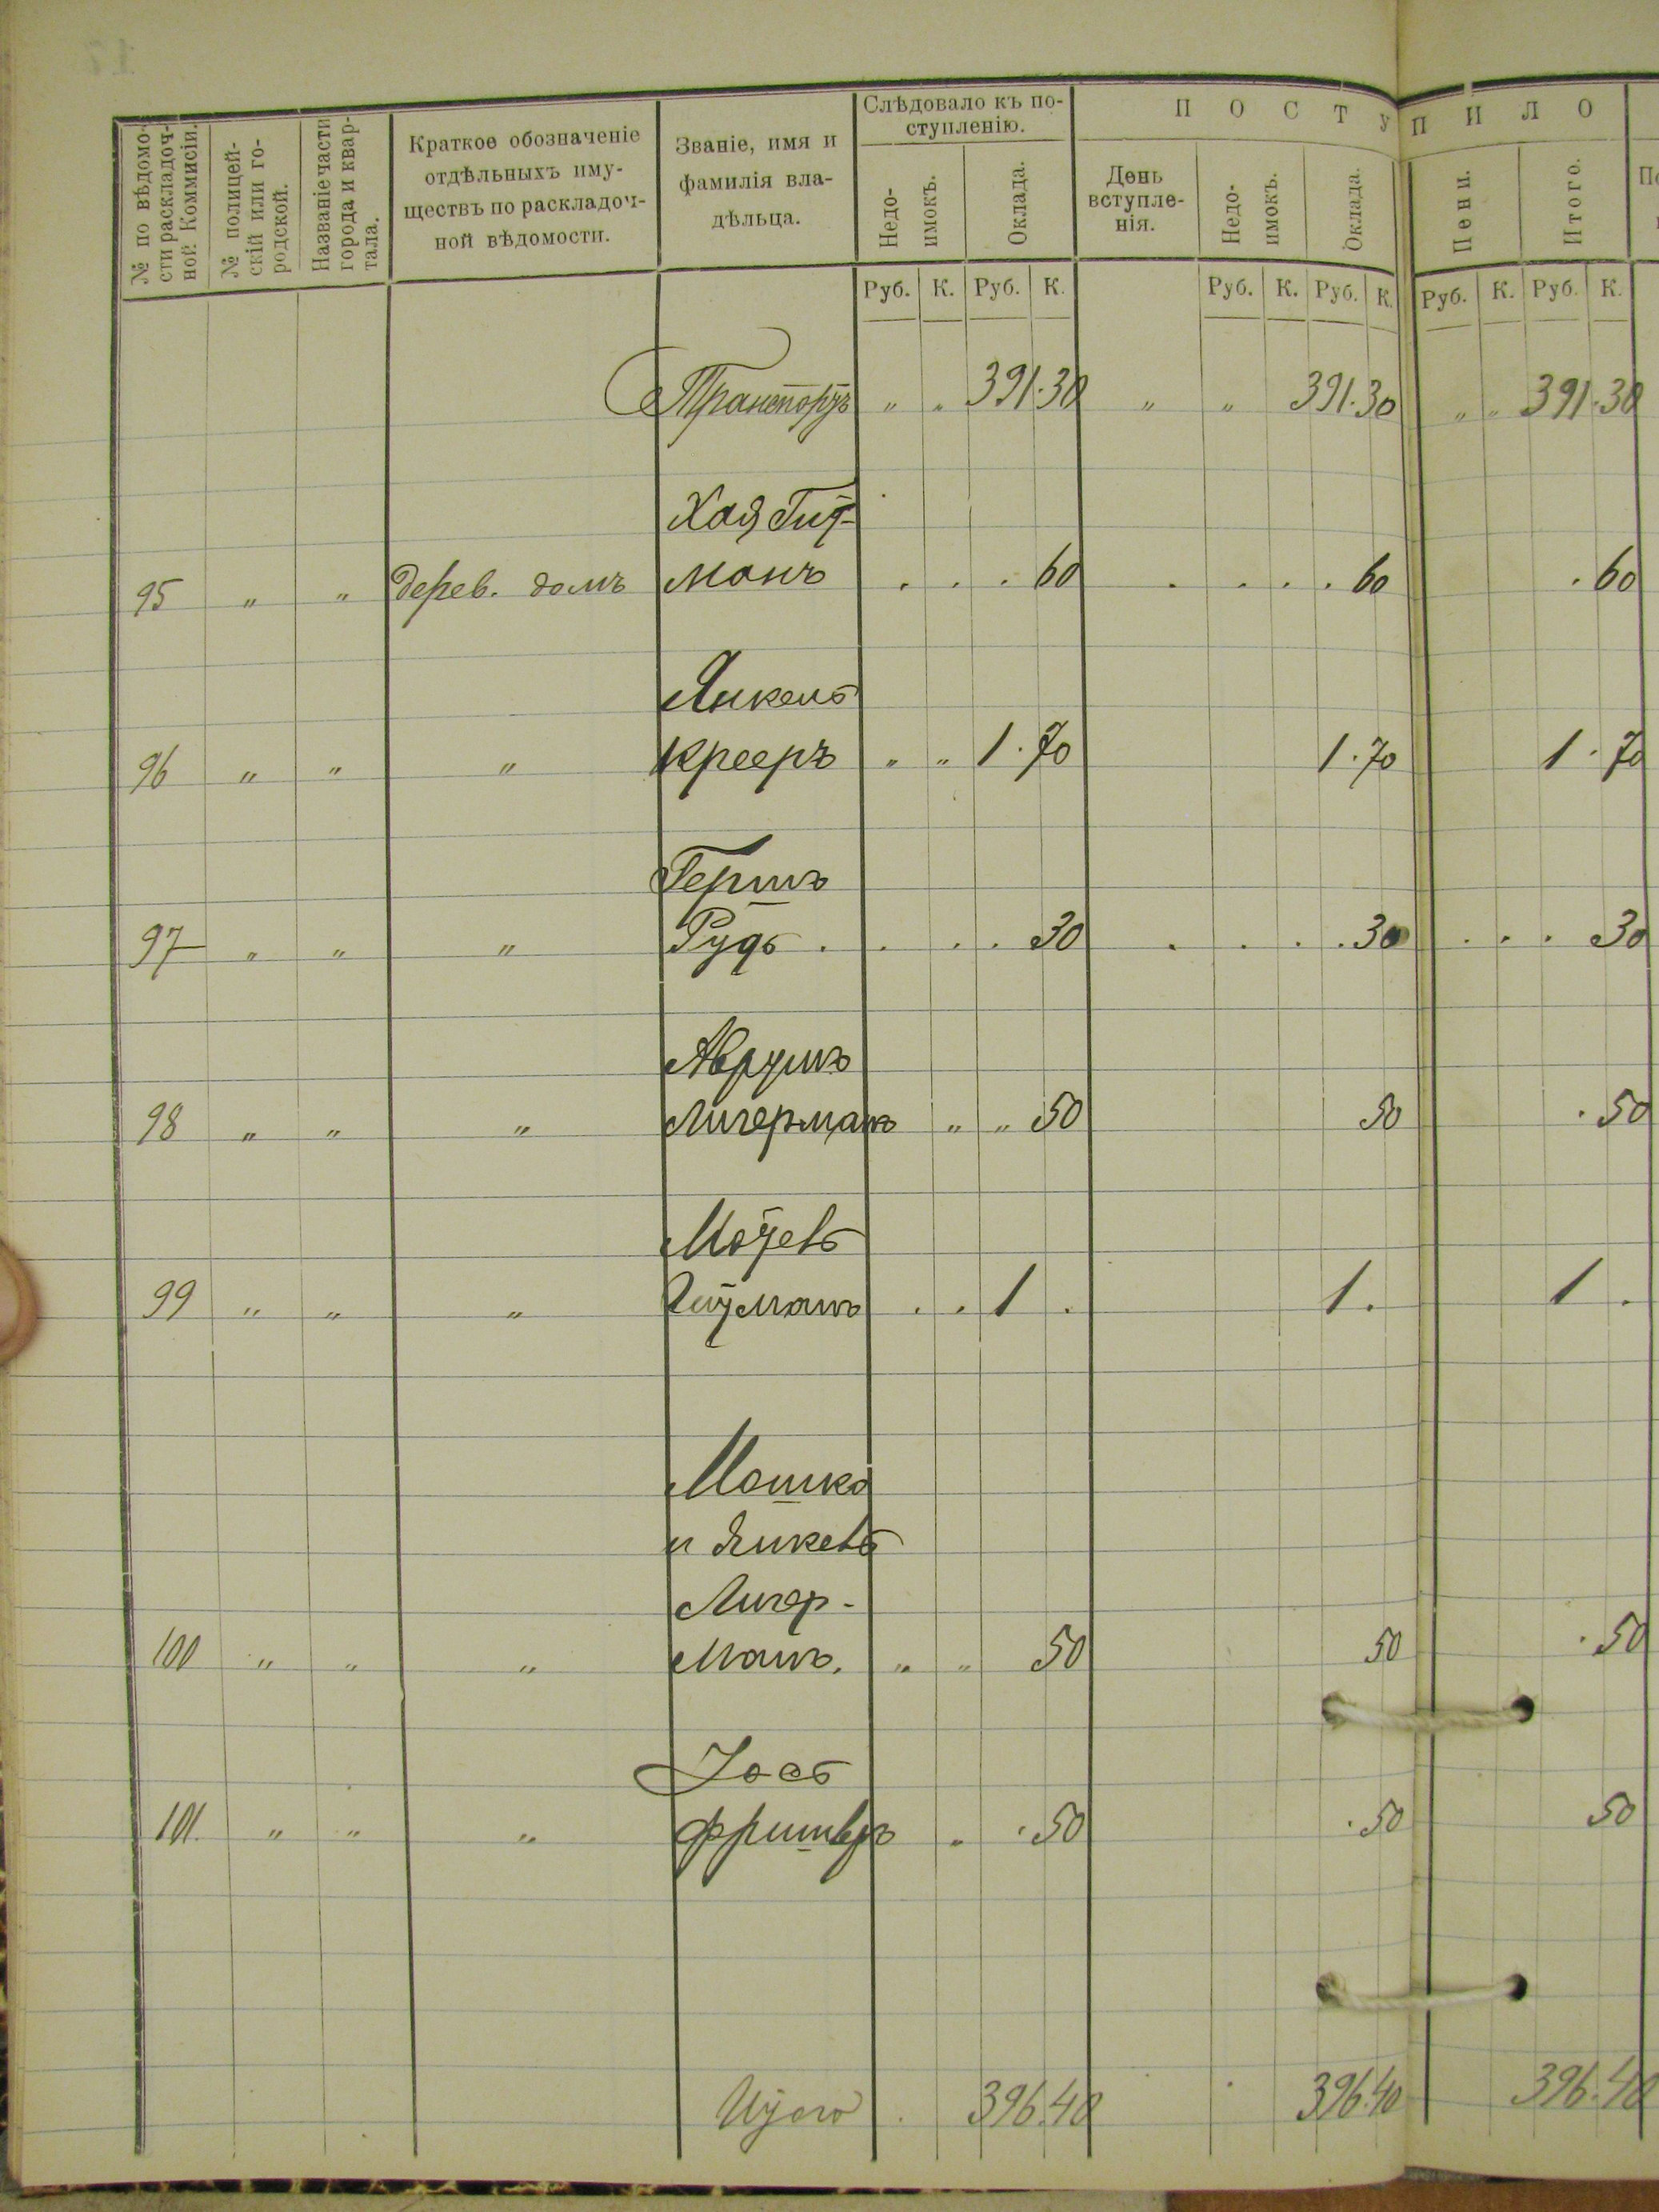 № по вѣдомо-
сти раскладоч-
ной Коммисіи.
№ полицей-
скій или го-
родской.
Названіе части
города и квар-
тала.
Краткое обозначеніе
отдѣльныхъ иму-
ществъ по раскладоч-
ной вѣдомости.
Званіе, имя и
фамилія вла-
дѣльца.
Слѣдовало къ по-
ступленію.
Недо-
имокъ.
Оклада.
ПОСТУПИЛО
День
вступле-
нія.
Недо-
имокъ.
Оклада.
Пени.
Итого.
Руб. К. Руб. К. Руб. К. Руб. К. Руб. К. Руб. К.
Транспортъ „ „ 391.30 „ „ 391.30 „ „ 391.30
Хая Гит-
95 „ „ дерев. домъ манъ . . . 60 . . . . 60 . 60
Янкель
96 „ „ „ Крееръ „ „ 1.70 1.70 1.70
Гершъ
97 „ „ „ Рудь . . . . 30 . . . . 30 . . . 30
Аврумъ
98 „ „ „ Лигерманъ „ „ 50 50 . 50
99 „ „ „ . . 1 . 1. 1 .
Мошко
и Янкель
Лигер-
100 „ „ „ манъ. „ „ 50 50 . 50
Іось
101. „ „ „ „ . 50 . 50 50
Итого . 396.40 396.40 396.40